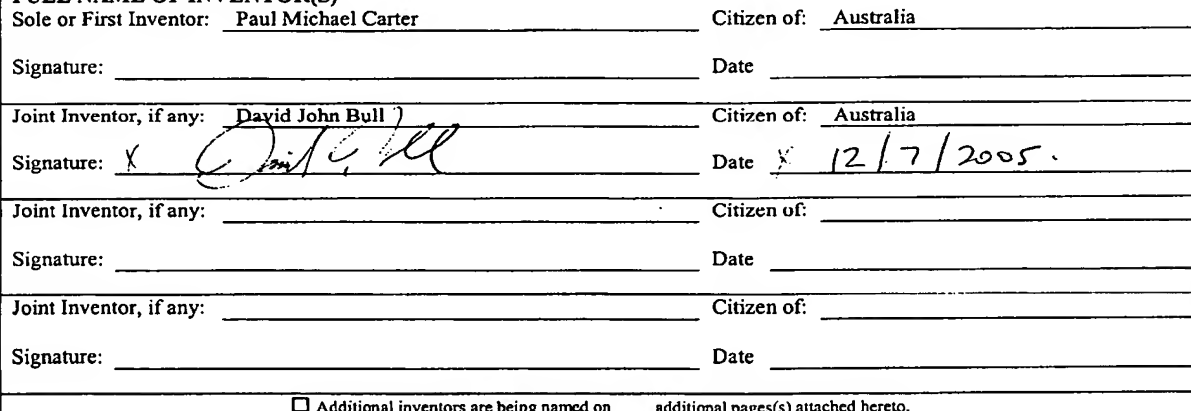 FULL NAME OF INVENTOR(S)
Sole or First Inventor: Paul Michael Carter Citizen of: Australia
Signature: Date
Joint Inventor, if any: David John Bull Citizen of: Australia
Signature: X Date X 12/7/2005.
Joint Inventor, if any: Citizen of:
Signature: Date
Joint Inventor, if any: Citizen of:
Signature: Date
☐ Additional inventors are being named on additional pages(s) attached hereto.